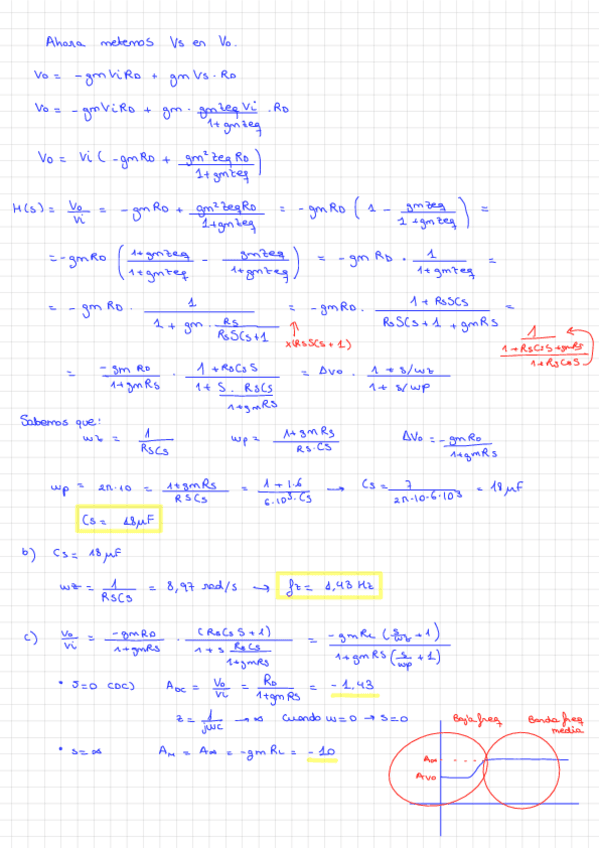 Ahora metemos Vs en Vo.
Vo = -gmViRD + gmVs·RD
Vo = -gmViRD + gm · gmzeqVi / 1+gmzeq · RD
Vo = Vi ( -gmRD + gm²zeqRD / 1+gmzeq )
H(s) = Vo/Vi = -gmRD + gm²zeqRD / 1+gmzeq = -gmRD ( 1 - gmzeq / 1+gmzeq ) =
= -gmRD ( 1+gmzeq / 1+gmzeq - gmzeq / 1+gmzeq ) = -gmRD · 1 / 1+gmzeq =
= -gmRD · 1 / 1 + gm · Rs / RsSCs+1 = -gmRD · 1 + RsSCs / RsSCs+1 + gmRs =
x(RsSCs+1)
1 / 1+RsCsS+gmRs / 1+RsCsS
= -gmRD / 1+gmRs · 1+RsCsS / 1+ S · RsCs / 1+gmRs = Avo · 1 + s/wz / 1 + s/wp
Sabemos que:
wz = 1 / RsCs wp = 1+gmRs / Rs·Cs Avo = -gmRD / 1+gmRs
wp = 2π·10 = 1+gmRs / RsCs = 1+1·6 / 6·10³·Cs → Cs = 7 / 2π·10·6·10³ = 18μF
Cs = 18μF
b) Cs = 18μF
wz = 1 / RsCs = 8,97 rad/s → fz = 1,43 Hz
c) Vo/Vi = -gmRD / 1+gmRs · (RsCsS+1) / 1 + s RsCs / 1+gmRs = -gmRL (s/wz +1) / 1+gmRS (s/wp +1)
• S=0 (DC) ADC = Vo/Vi = RD / 1+gmRs = -1,43
z = 1 / jwc → ∞ cuando w=0 → s=0
• s=∞ AM = A∞ = -gmRL = -10
Baja freq
Banda freq
media
A∞
Avo